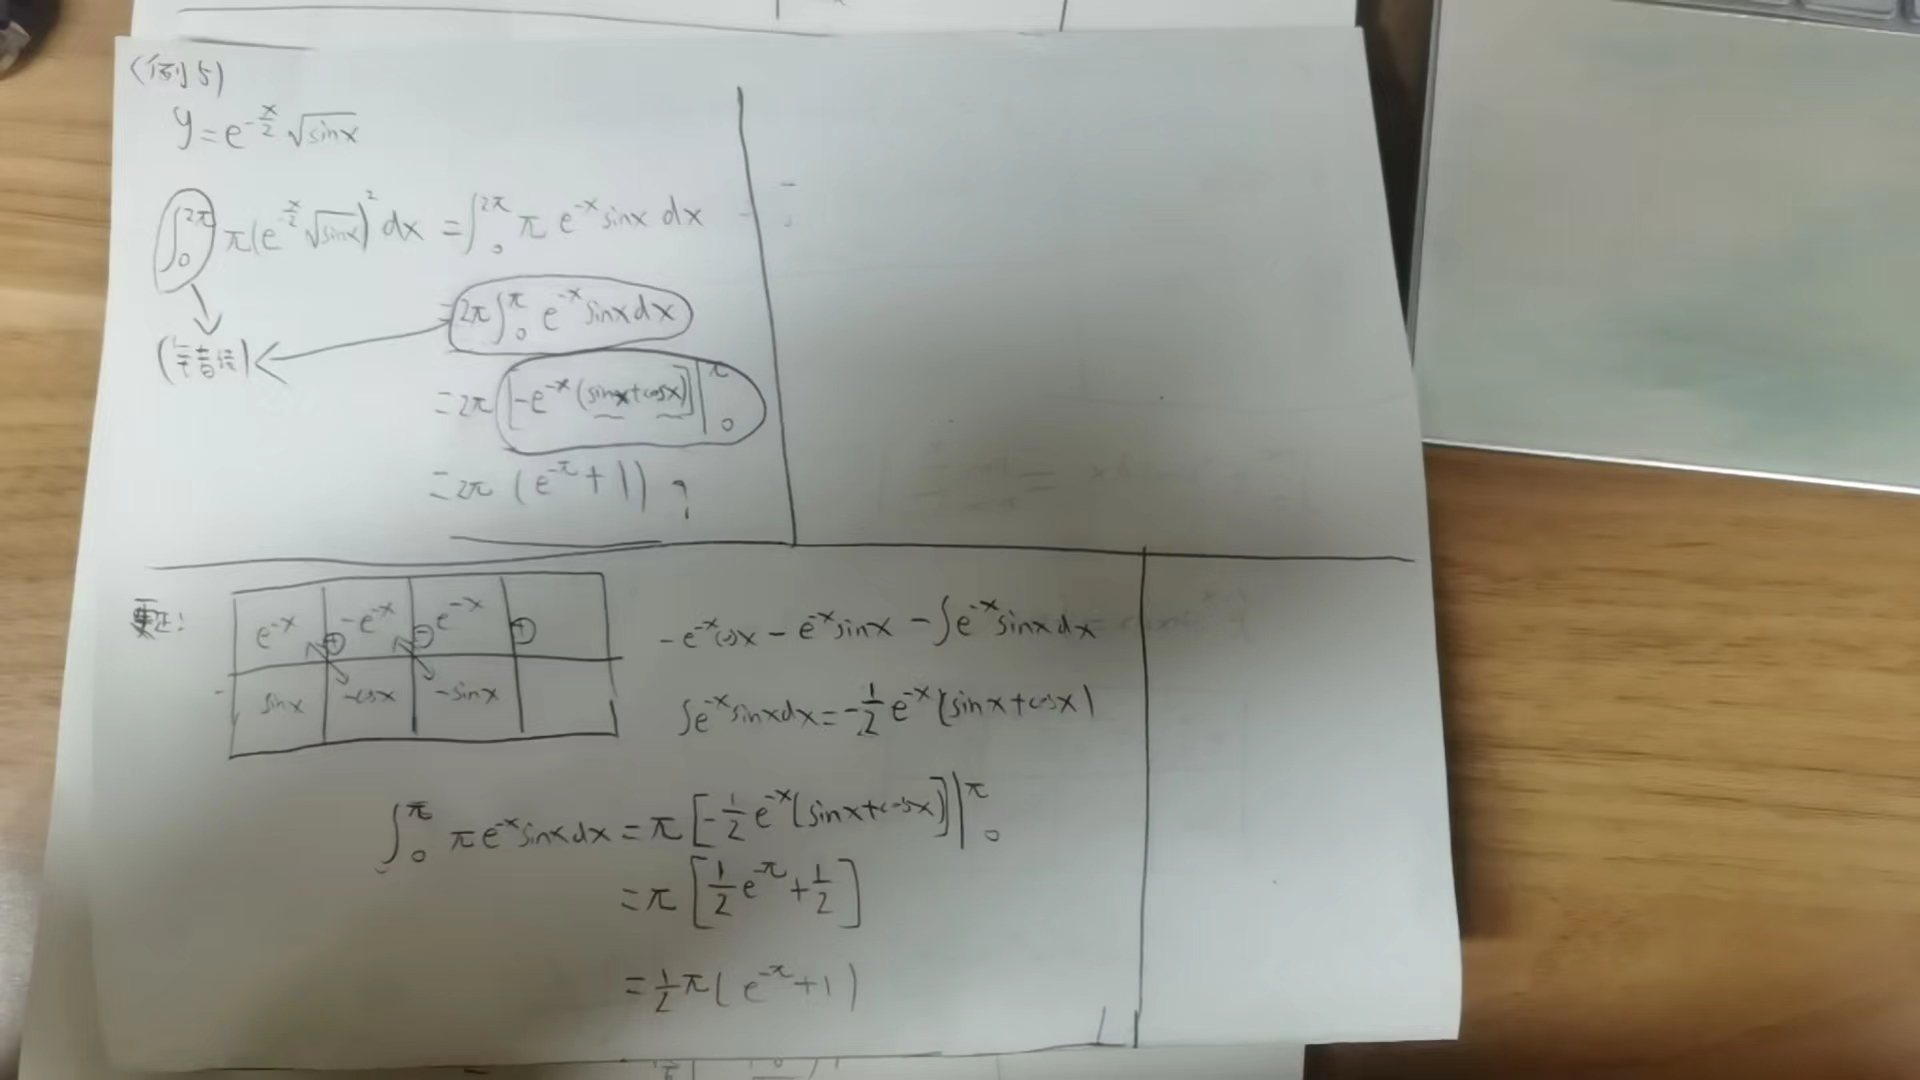 (例5)
y=e^{-\frac{x}{2}}\sqrt{sinx}
\int_0^{2π} π(e^{-\frac{x}{2}}\sqrt{sinx})^2 dx = \int_0^{2π} π e^{-x} sinx dx
=2π\int_0^π e^{-x} sinx dx
=2π [-e^{-x}(sinx+cosx)]|_0^π
=2π (e^{-π}+1) ?
证:
e^{-x} ⊕ -e^{-x} ⊖ e^{-x} ⊕
sinx -cosx -sinx
-e^{-x}cosx - e^{-x}sinx - ∫e^{-x}sinxdx
∫e^{-x}sinxdx = -\frac{1}{2}e^{-x}(sinx+cosx)
\int_0^π πe^{-x}sinxdx = π[-\frac{1}{2}e^{-x}(sinx+cosx)]|_0^π
=π[\frac{1}{2}e^{-π}+\frac{1}{2}]
=\frac{1}{2}π(e^{-π}+1)